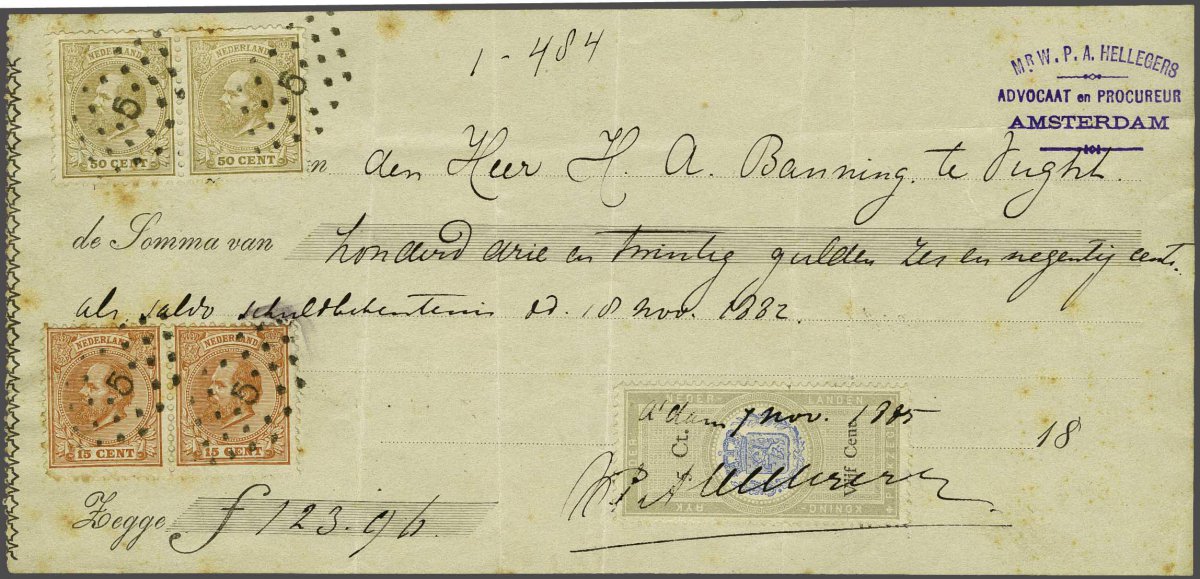 NEDERLAND NEDERLAND
5 5
50 CENT 50 CENT
1 - 484
Mr W. P. A. HELLEGERS
ADVOCAAT en PROCUREUR
AMSTERDAM
n den Heer H. A. Banning. te Vught.
de Somma van honderd drie en twintig gulden zes en negentig cents
als saldo schuldbekentenis dd. 18 nov. 1882.
NEDERLAND NEDERLAND
5 5
15 CENT 15 CENT
NEDER- LANDEN
A'dam 7 nov. 1885
18
Ct. Vijf Cent
RYK KONING-
Zegge f 123.96